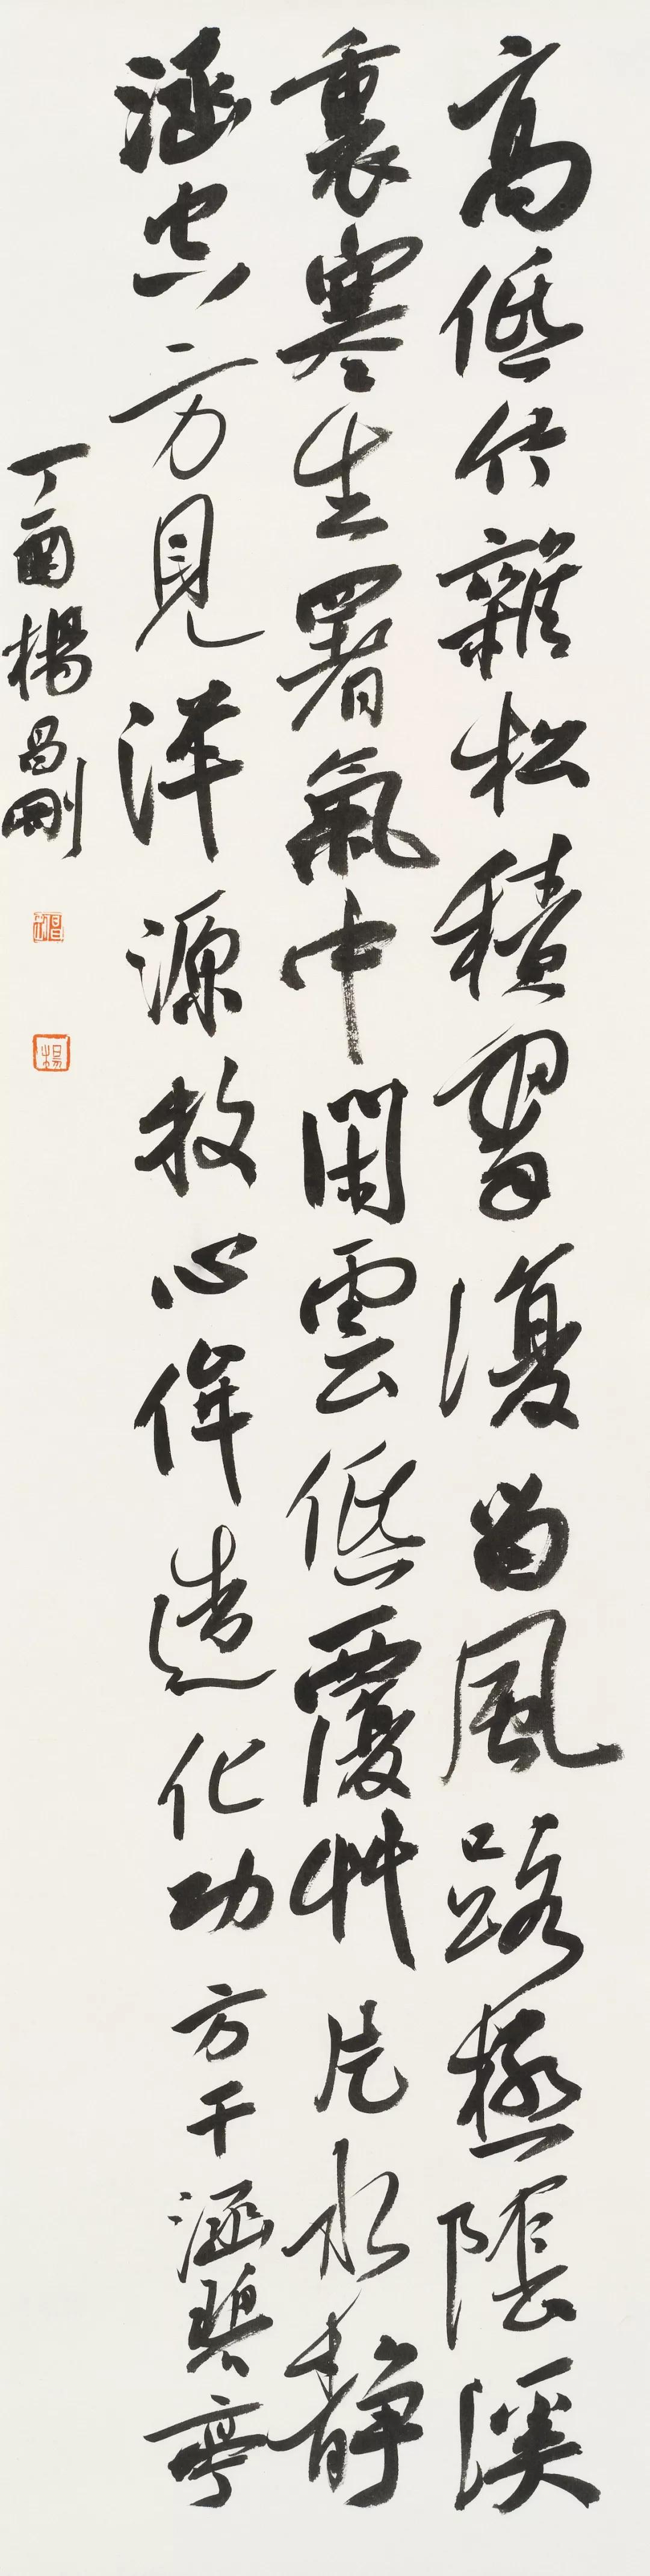 高低竹雜松積翠復留風路極陰溪
裏寒生署氣中閑雲低覆艸片水静
涵空方見洋源牧心侔造化功方干涵碧亭
丁酉楊昌剛
楊